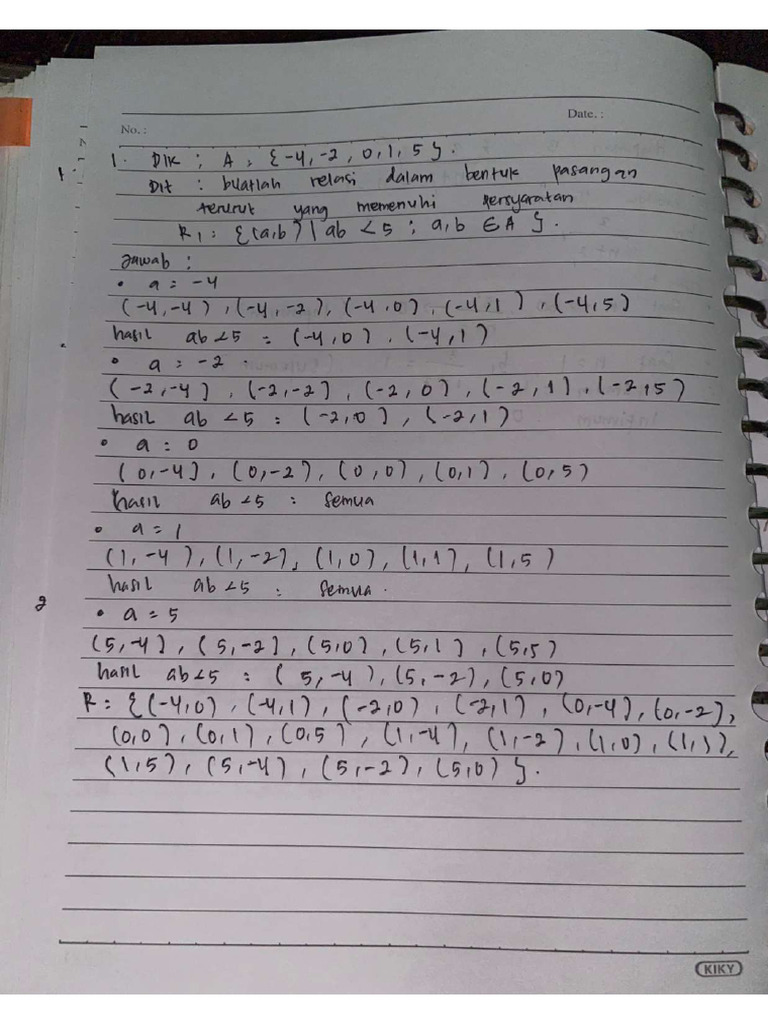 No. :
Date. :
1. Dik : A = {-4, -2, 0, 1, 5}.
Dit : buatlah relasi dalam bentuk pasangan
terurut yang memenuhi persyaratan
R1 = {(a,b) | ab < 5 ; a,b ∈ A}.
Jawab :
• a = -4
(-4,-4), (-4,-2), (-4,0), (-4,1), (-4,5)
hasil ab<5 = (-4,0), (-4,1)
• a = -2
(-2,-4), (-2,-2), (-2,0), (-2,1), (-2,5)
hasil ab <5 = (-2,0), (-2,1)
• a = 0
(0,-4), (0,-2), (0,0), (0,1), (0,5)
hasil ab <5 = semua
• a = 1
(1,-4), (1,-2), (1,0), (1,1), (1,5)
hasil ab <5 = semua.
2
• a = 5
(5,-4), (5,-2), (5,0), (5,1), (5,5)
hasil ab<5 = (5,-4), (5,-2), (5,0)
R = {(-4,0), (-4,1), (-2,0), (-2,1), (0,-4), (0,-2),
(0,0), (0,1), (0,5), (1,-4), (1,-2), (1,0), (1,1),
(1,5), (5,-4), (5,-2), (5,0)}.
KIKY